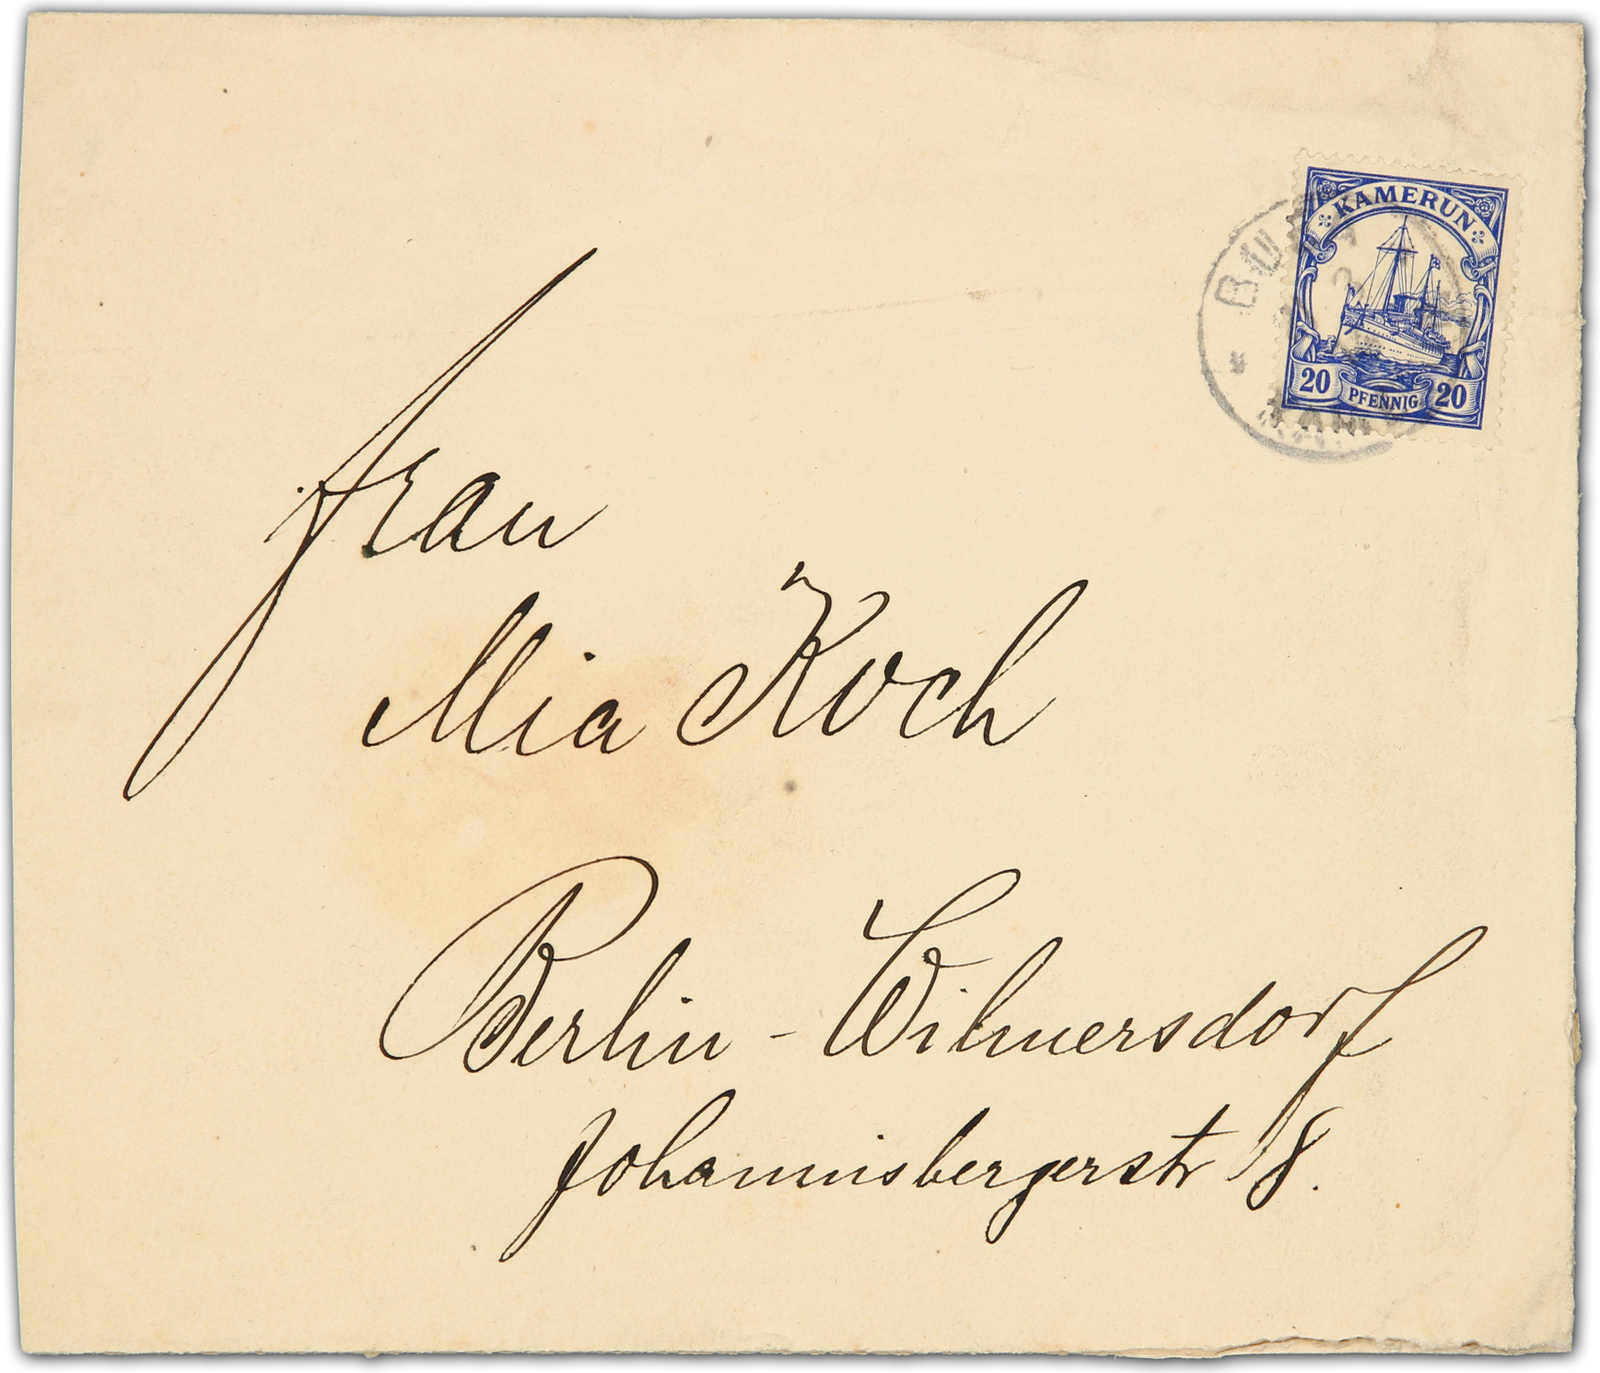 KAMERUN
20 PFENNIG 20
Frau
Mia Koch
Berlin - Wilmersdorf
Johannisbergerstr 18.